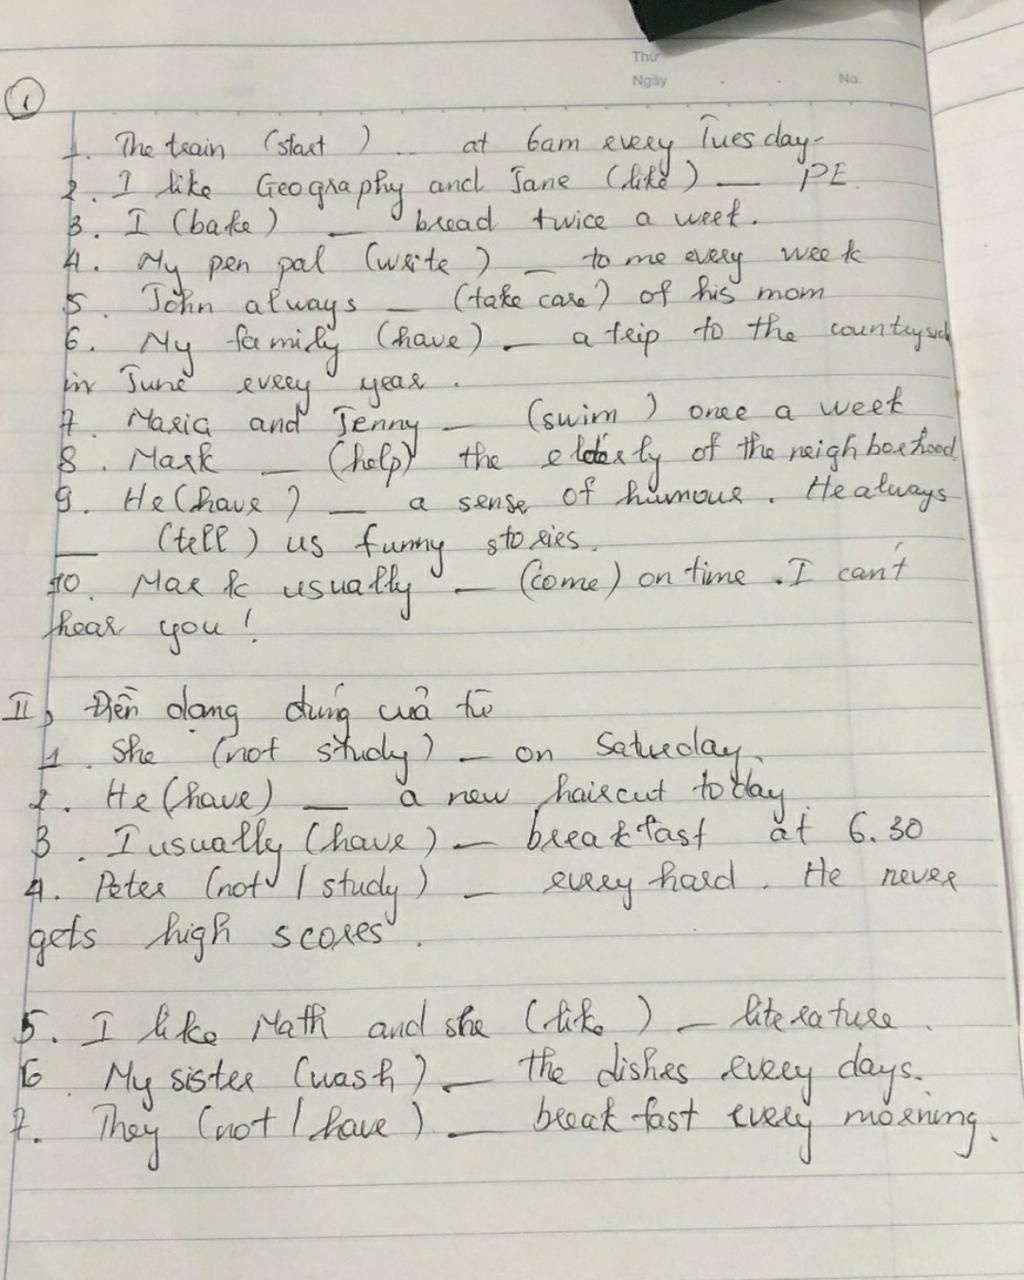 Thứ
Ngày . . No.
1
1. The train (start ) ... at 6am every Tuesday.
2. I like Geography and Jane (like) — PE
3. I (bake) — bread twice a week.
4. My pen pal (write ) — to me every week
5. John always — (take care) of his mom
6. My family (have) — a trip to the
in June every year.
7. Maria and Jenny — (swim ) once a week
8. Mark — (help) the elderly of the neighborhood
9. He (have ) — a sense of humour. He always
— (tell) us funny stories.
10. Mark usually — (come) on time. I can't
hear you!
II, Điền dạng đúng của từ
1. She (not study) — on Saturday.
2. He (have) — a new haircut today.
3. I usually (have) — breakfast at 6.30
4. Peter (not / study ) — every hard. He never
gets high scores.
5. I like Math and she (like ) — literature.
6 My sister (wash) — the dishes every days.
7. They (not / have ) — breakfast every morning.